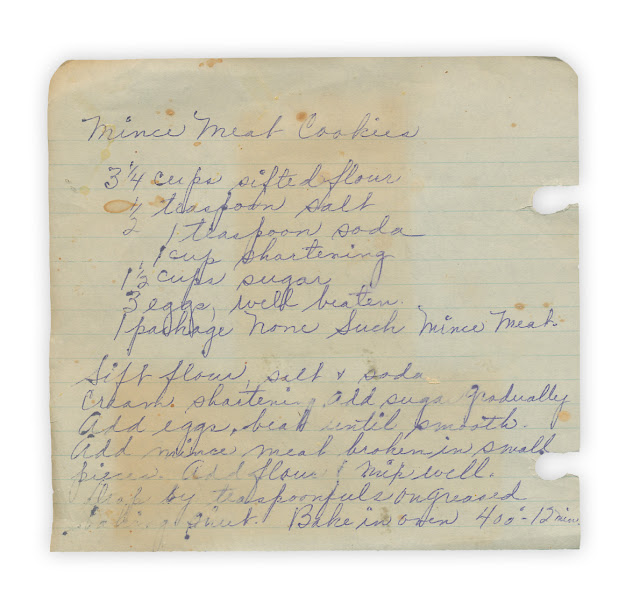 Mince Meat Cookies
3 1/4 cups sifted flour
1/2 teaspoon salt
1 teaspoon soda
1 cup shortening
1 1/2 cups sugar
3 eggs, well beaten.
1 package None Such Mince Meat.
Sift flour, salt & soda
Cream shortening, Add sugar gradually
Add eggs, beat until smooth.
Add mince meat broken in small
pieces. Add flour & mix well.
Drop by teaspoonfuls on greased
baking sheet. Bake in oven 400° - 12 min.